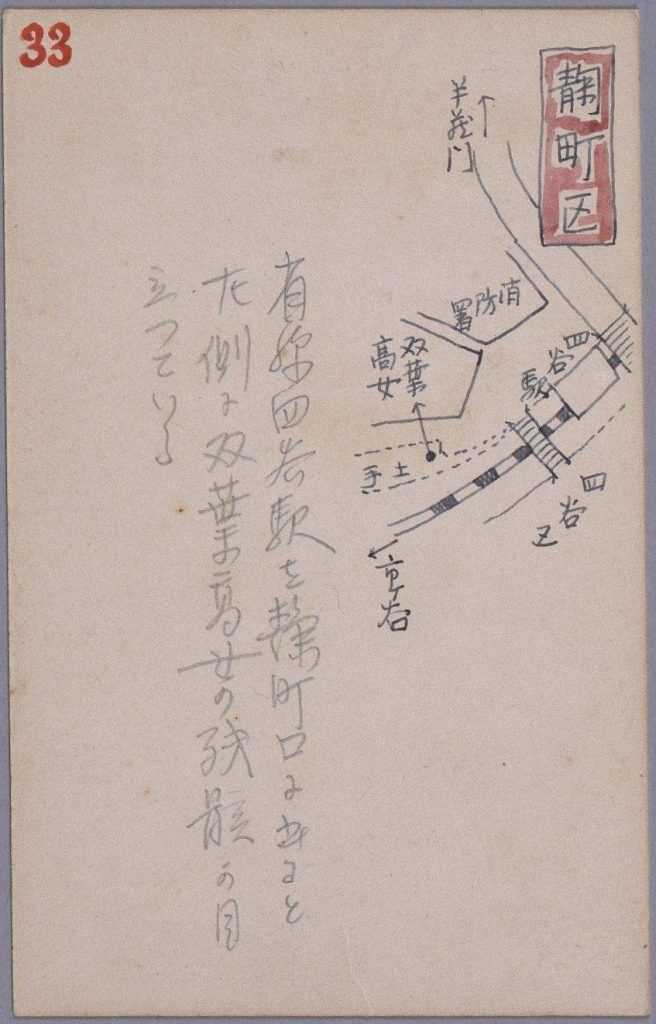 33
麹町区
半蔵門
消防署
双葉
高女
四谷駅
土手
四谷区
市ケ谷
省線四谷駅を麹町口に出ると
左側に双葉高女の残骸が目
立つている